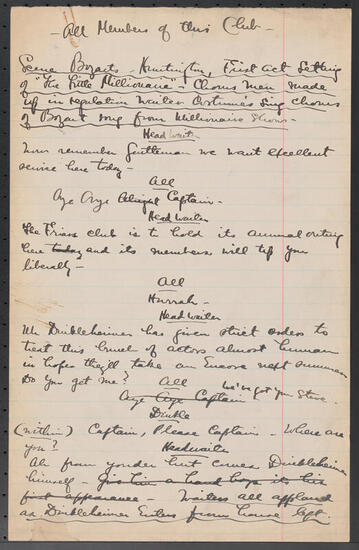 - All Members of this Club -
Scene Bozarts - Huntington, First Act Setting
of "The Little Millionaire" - Chorus men made
up in regulation Waiter Costumes Sing chorus
of Bozart song from Millionaire Show -
Head Waiter
Now remember Gentlemen we want excellent
service here today -
All
Aye Aye Captain -
Head Waiter
The Friars club is to hold its annual outing
here today and its members will tip you
liberally -
All
Hurrah -
Head Waiter
Mr Dinkleheimer has given strict orders to
treat this bunch of actors almost human
in hopes they'll take an Encore next summer
Do you get me?
All
Aye Aye Captain We've got you Steve -
Dinkle
(within) Captain, Please Captain - Where are
you?
Headwaiter
Ah from yonder hut comes Dinkleheimer
himself - Give him a hand boys its his
first appearance - Waiters all applaud
as Dinkleheimer Enters from house left